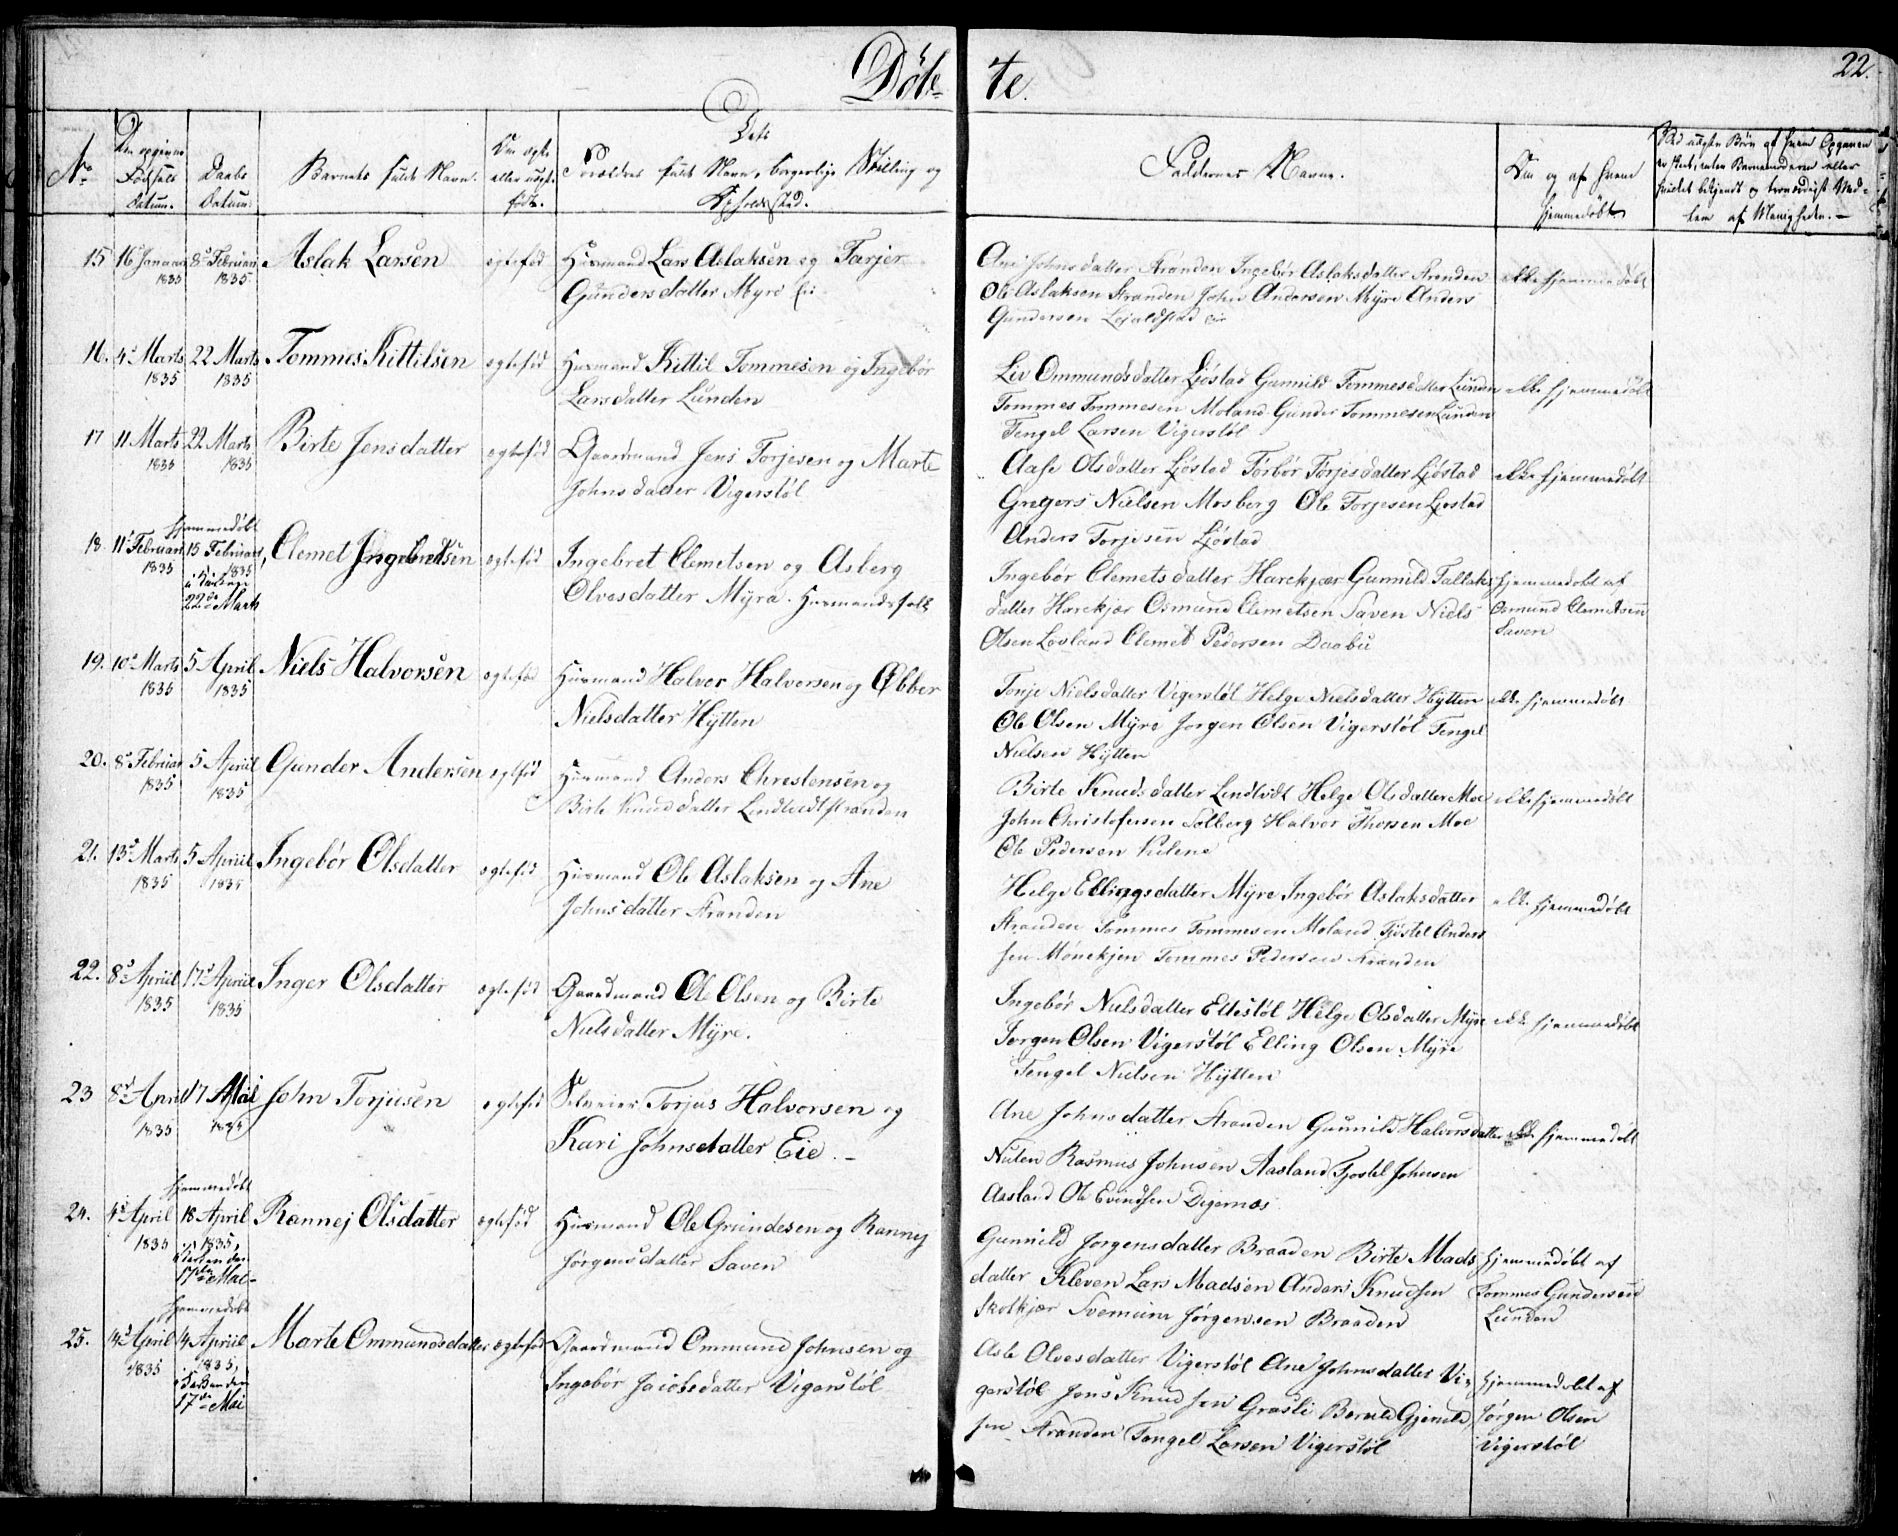 Døb-te.
22.
No
Den opgivne Fødsels Datum.
Daabs Datum.
Barnets fulde Navn.
Om ægte eller uægte født.
Dets Forældres fulde Navn, borgerlige Stilling og Opholdssted.
Faddernes Navne.
Om og af hvem hjemmedøbt
Ved uægte Børn af hvem Opgaven er skeet, enten Barnemoderen eller hvilket bekjendt og troværdigt Medlem af Menigheden.
15 16 Januar 1835 8 Februar 1835 Aslak Larsen ægtefød
Huusmand Lars Aslaksen og Tarjer
Gundersdatter Myre
Ane Johnsdatter Stranden Ingebør Aslaksdatter Stranden
Ole Aslaksen Stranden John Andersen Myre Anders
Gundersen
ikke hjemmedøbt
16. 4 Marts 1835 22 Marts 1835 Tommes Kittilsen ægtefød
Huusmand Kittil Tommesen og Ingebør
Larsdatter Lunden
Liv Ommundsdatter Ljøstad Gunnild Tommesdatter Lunden
Tommes Tommesen Moland Gunder Tommesen Lunden
Tengel Larsen Vigerstøl
ikke hjemmedøbt
17 11 Marts 1835 22 Marts 1835 Birte Jensdatter ægtefød
Gaardmand Jens Torjesen og Marte
Johnsdatter Vigerstøl
Aase Olsdatter Ljøstad Torbør Torjesdatter Ljøstad
Gregers Nielsen Mosberg Ole Torjesen Ljøstad
Anders Torjesen Ljøstad
ikke hjemmedøbt
18. 11 Februar 1835 hjemmedøbt 15 Februar 1835 i Kirken 22de Marts Clemet Ingebretsen ægtefød
Ingebret Clemetsen og Asberg
Olvesdatter Myra. Huusmandsfolk
Ingebør Clemetsdatter Harekjær Gunnild Tallaks
datter Harekjær Osmund Clemetsen Saven Niels
Olsen Løvland Clemet Pedersen Daabu
hjemmedøbt af
Osmund Clemetsen
Saven
19. 10 Marts 1835 5 April 1835 Niels Halvorsen ægtefød
Huusmand Halvor Halvorsen og Øbber
Nielsdatter Hytten
Tonje Nielsdatter Vigerstøl Helge Nielsdatter Hytten
Ole Olsen Myre Jørgen Olsen Vigerstøl Tengel
Nielsen Hytten
ikke hjemmedøbt
20. 8 Februar 1835 5 April 1835 Gunder Andersen ægtefød
Huusmand Anders Christensen og
Birte Knudsdatter Lindtvedtstranden
Birte Knudsdatter Lindtvedt Helge Olsdatter Moe
John Christofersen Solberg Halvor Thorsen Moe
Ole Pedersen Kilene
ikke hjemmedøbt
21. 13 Marts 1835 5 April 1835 Ingebør Olsdatter ægtefød
Huusmand Ole Aslaksen og Ane
Johnsdatter Stranden
Helge Ellingsdatter Myre Ingebør Aslaksdatter
Stranden Tommes Tommesen Moland Tjøstel Anders
sen Mønekjen Tommes Pedersen Stranden
ikke hjemmedøbt
22. 8 April 1835 17 April 1835 Inger Olsdatter ægtefød
Gaardmand Ole Olsen og Birte
Nielsdatter Myre.
Ingebør Nielsdatter Eltestøl Helge Olsdatter Myre
Jørgen Olsen Vigerstøl Elling Olsen Myre
Tengel Nielsen Hytten
ikke hjemmedøbt
23 8 April 1835 17 1835 John Torjusen ægtefød
Selveier Torjus Halvorsen og
Kari Johnsdatter Eie.
Ane Johnsdatter Stranden Gunnild Halvorsdatter
Nuten Rasmus Johnsen Aasland Tjostel Johnsen
Aasland Ole Evindsen Digernæs
ikke hjemmedøbt
24. 4 April 1835 hjemmedøbt 18 April 1835, i Kirken den 17de Mai Rannej Olsdatter ægtefød
Huusmand Ole Grundesen og Rannej
Jørgensdatter Saven
Gunnild Jørgensdatter Braaden Birte Mads
datter Kleven Lars Madsen Anders Knudsen
Skolkjær Svenum Jørgensen Braaden
hjemmedøbt af
Tommes Gundersen
Lunden
25. 4 April 1835 hjemmedøbt 4 April 1835, i Kirken den 17de Mai Marte Ommundsdatter ægtefød
Gaardmand Ommund Johnsen og
Ingebør Jacobsdatter Vigerstøl
Asle Olvesdatter Vigerstøl Ane Johnsdatter Vi-
gerstøl Jens Knudsen Græsli Berul Gjeruld
sen Stranden Tengel Larsen Vigerstøl
hjemmedøbt af
Jørgen Olsen
Vigerstøl